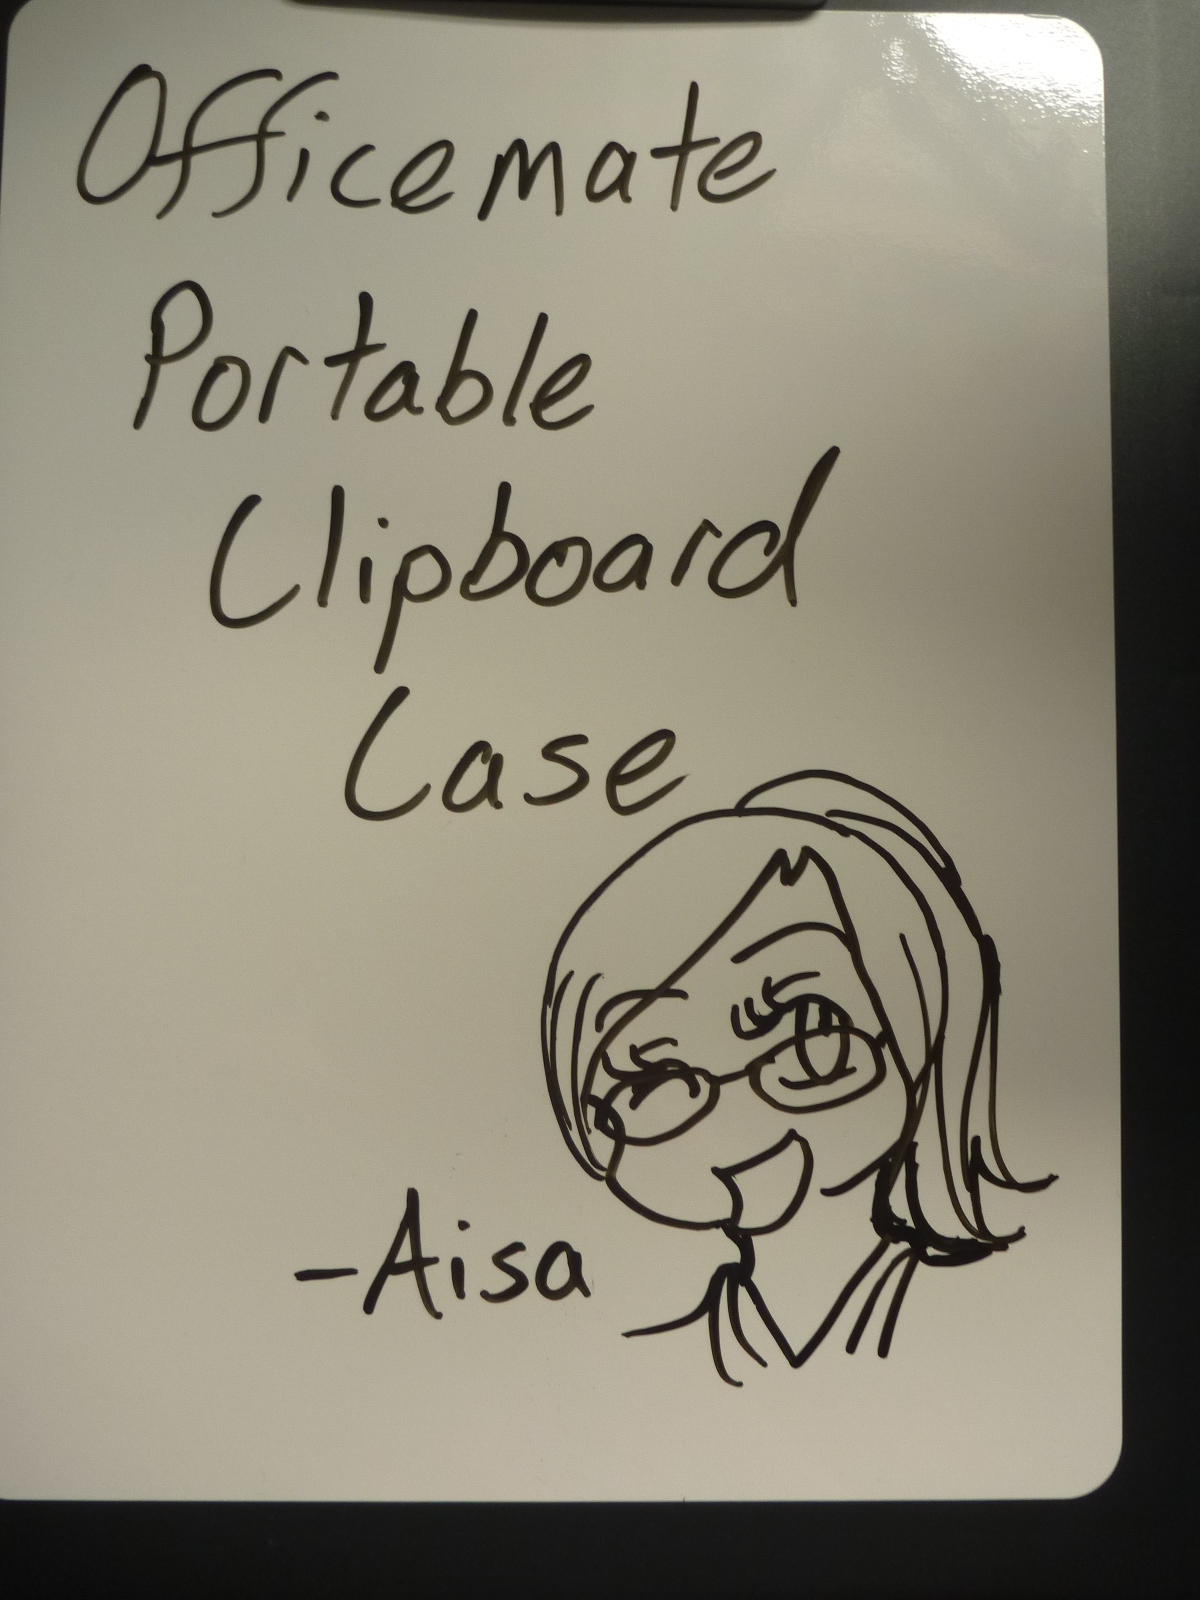 Officemate
Portable
Clipboard
Case
-Aisa